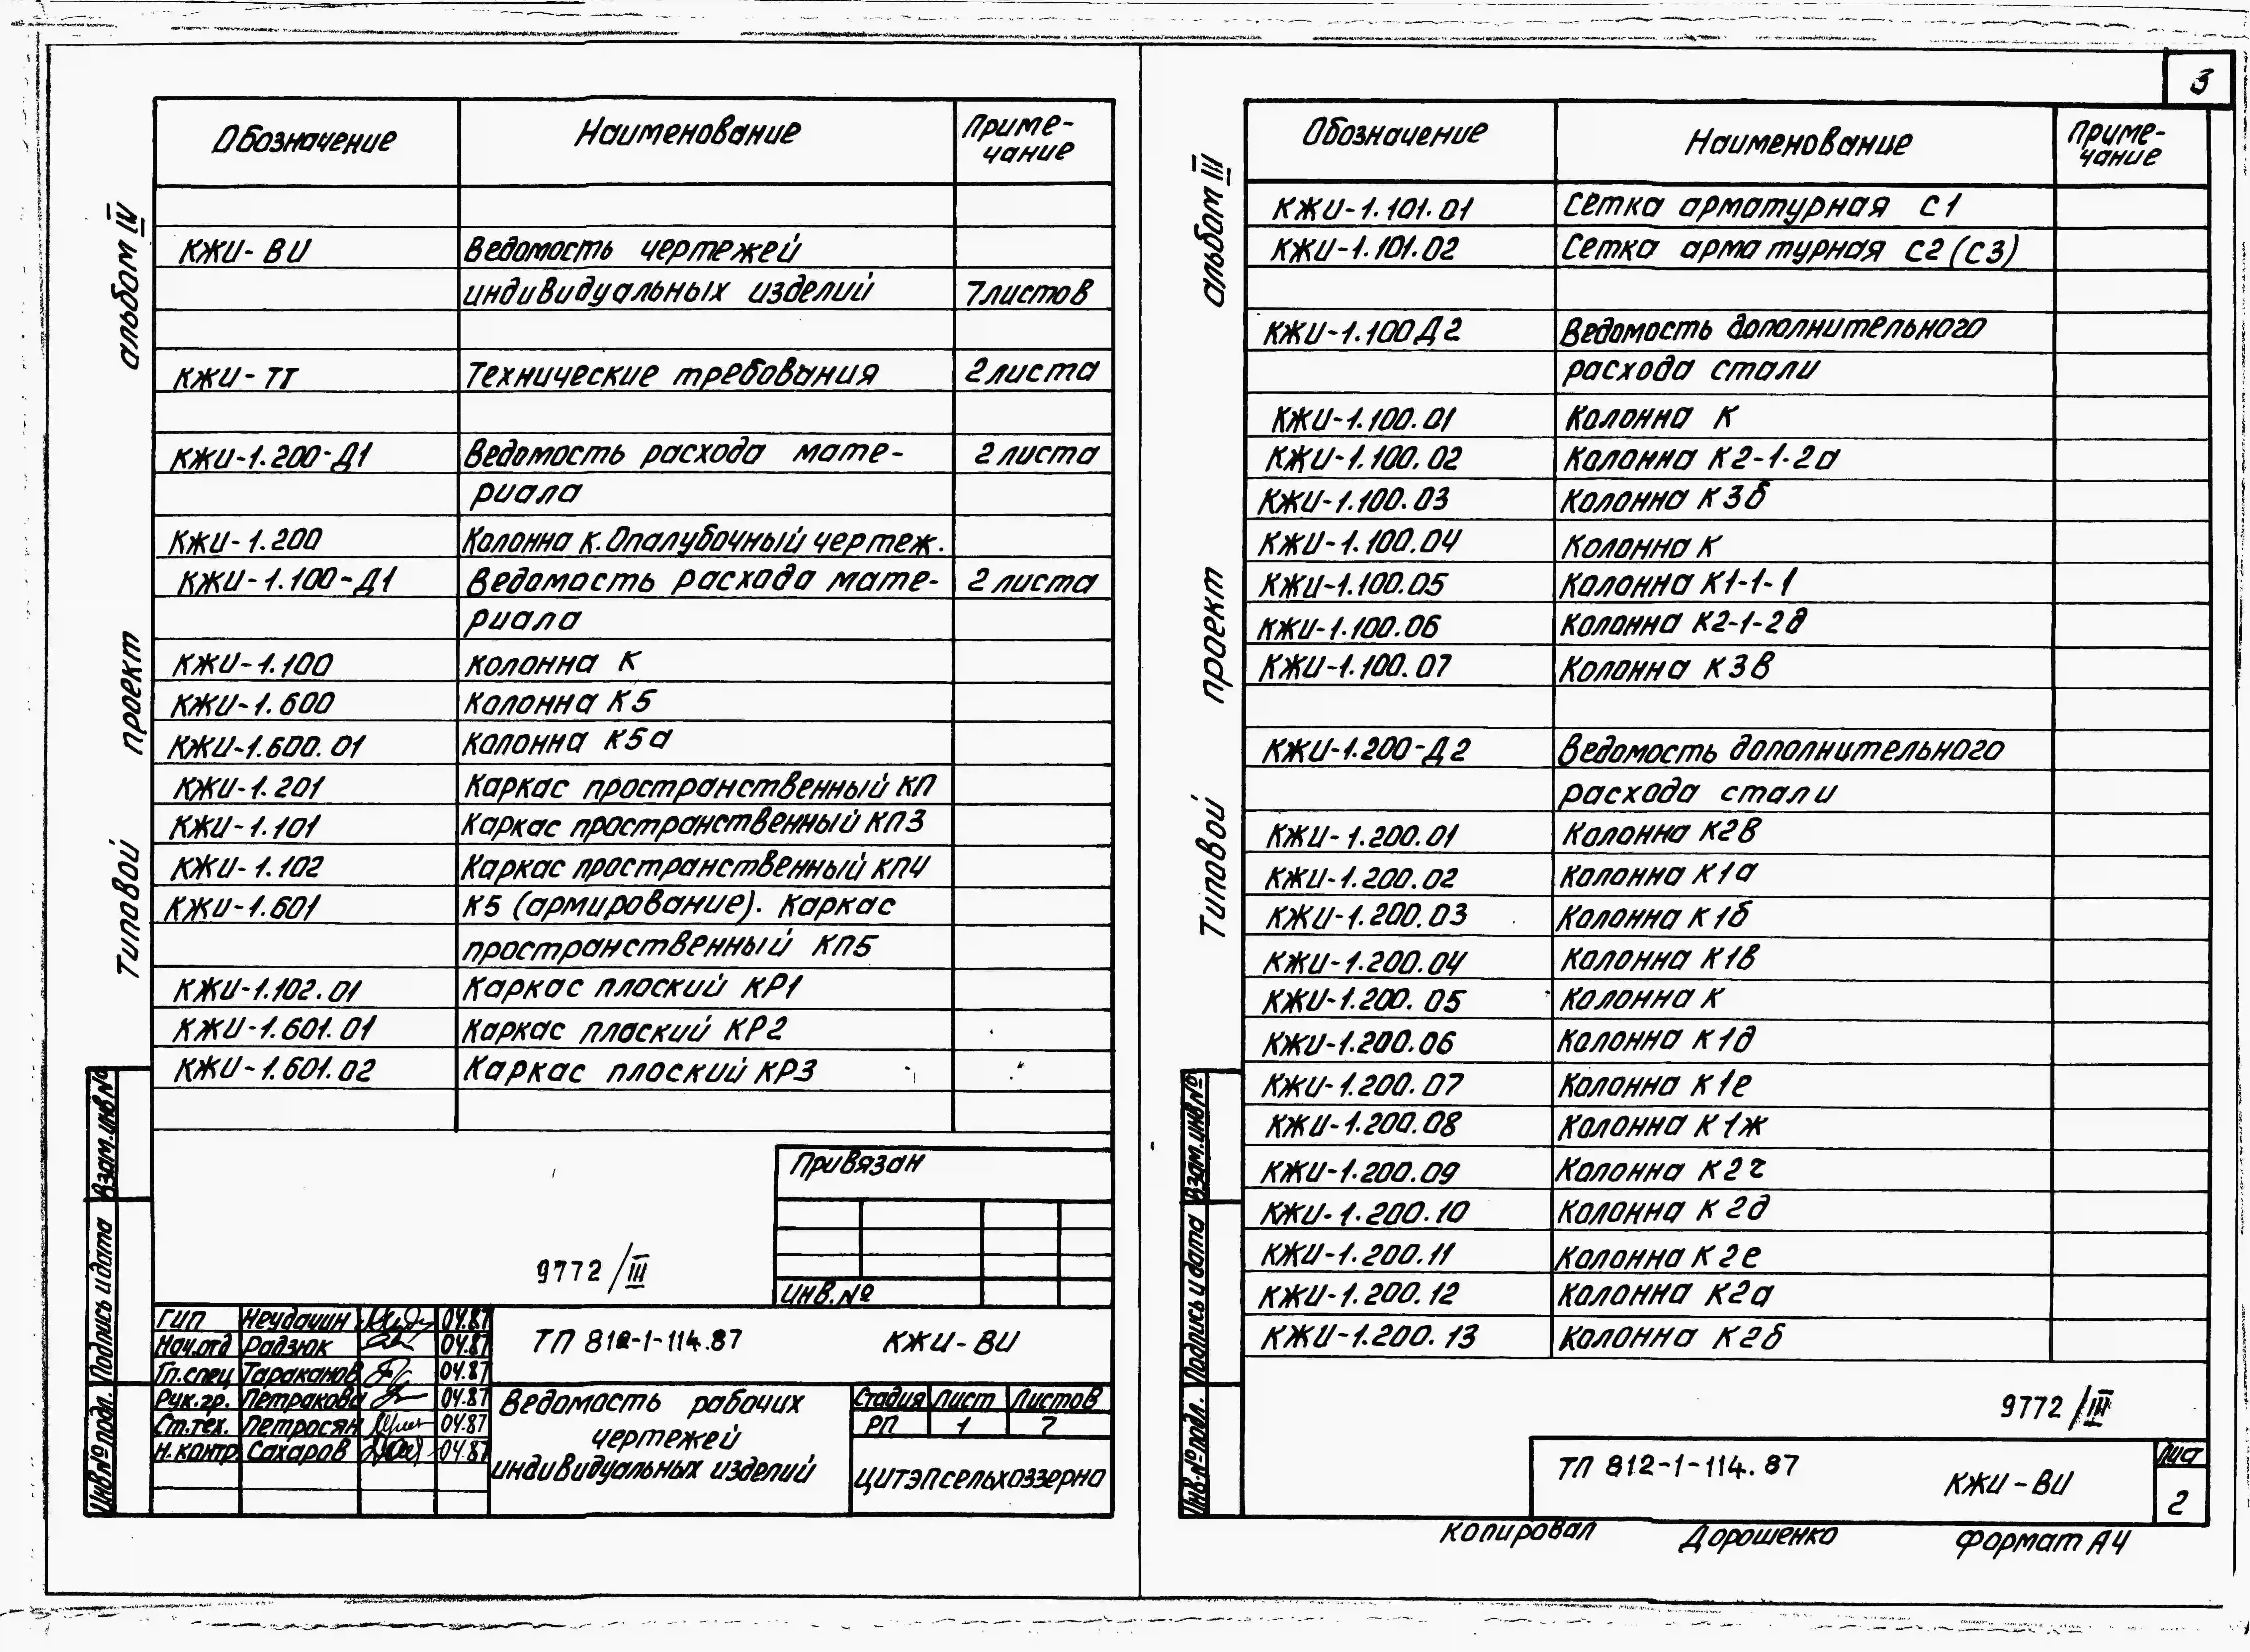 3
альбом IV
Типовой проект
Обозначение Наименование Приме-
чание
КЖИ-ВИ Ведомость чертежей
индивидуальных изделий 7листов
КЖИ-ТТ Технические требования 2листа
КЖИ-1.200-Д1 Ведомость расхода мате- 2листа
риала
КЖИ-1.200 Колонна К.Опалубочный чертеж.
КЖИ-1.100-Д1 Ведомость расхода мате- 2листа
риала
КЖИ-1.100 колонна К
КЖИ-1.600 Колонна К5
КЖИ-1.600.01 Колонна К5а
КЖИ-1.201 Каркас пространственный КП
КЖИ-1.101 Каркас пространственный КП3
КЖИ-1.102 Каркас пространственный КП4
КЖИ-1.601 К5 (армирование). Каркас
пространственный КП5
КЖИ-1.102.01 Каркас плоский КР1
КЖИ-1.601.01 Каркас плоский КР2
КЖИ-1.601.02 Каркас плоский КР3
Привязан
Инв.№
9772/III
Взам.инв№
Подпись и дата
Инв№подл.
ГИП Неудачин 04.87
Нач.отд Радзюк 04.87
Гл.спец Тараканов 04.87
Рук.гр. Петракова 04.87
Ст.тех. Петросян 04.87
Н.контр Сахаров 04.87
ТП 812-1-114.87 КЖИ-ВИ
Ведомость рабочих
чертежей
индивидуальных изделий
Стадия Лист Листов
РП 1 7
ЦИТЭПсельхоззерно
альбом III
Типовой проект
Обозначение Наименование Приме-
чание
КЖИ-1.101.01 Сетка арматурная С1
КЖИ-1.101.02 Сетка арматурная С2(С3)
КЖИ-1.100Д2 Ведомость дополнительного
расхода стали
КЖИ-1.100.01 Колонна К
КЖИ-1.100.02 Колонна К2-1-2а
КЖИ-1.100.03 Колонна К3б
КЖИ-1.100.04 Колонна К
КЖИ-1.100.05 Колонна К1-1-1
КЖИ-1.100.06 Колонна К2-1-2д
КЖИ-1.100.07 Колонна К3в
КЖИ-1.200-Д2 Ведомость дополнительного
расхода стали
КЖИ-1.200.01 Колонна К2в
КЖИ-1.200.02 Колонна К1а
КЖИ-1.200.03 Колонна К1б
КЖИ-1.200.04 Колонна К1в
КЖИ-1.200.05 Колонна К
КЖИ-1.200.06 Колонна К1д
КЖИ-1.200.07 Колонна К1е
КЖИ-1.200.08 Колонна К1ж
КЖИ-1.200.09 Колонна К2г
КЖИ-1.200.10 Колонна К2д
КЖИ-1.200.11 Колонна К2е
КЖИ-1.200.12 Колонна К2а
КЖИ-1.200.13 Колонна К2б
9772/III
Взам.инв№
Подпись и дата
Инв.№подл.
ТП 812-1-114.87 КЖИ-ВИ
Лист
2
Копировал Дорошенко Формат А4